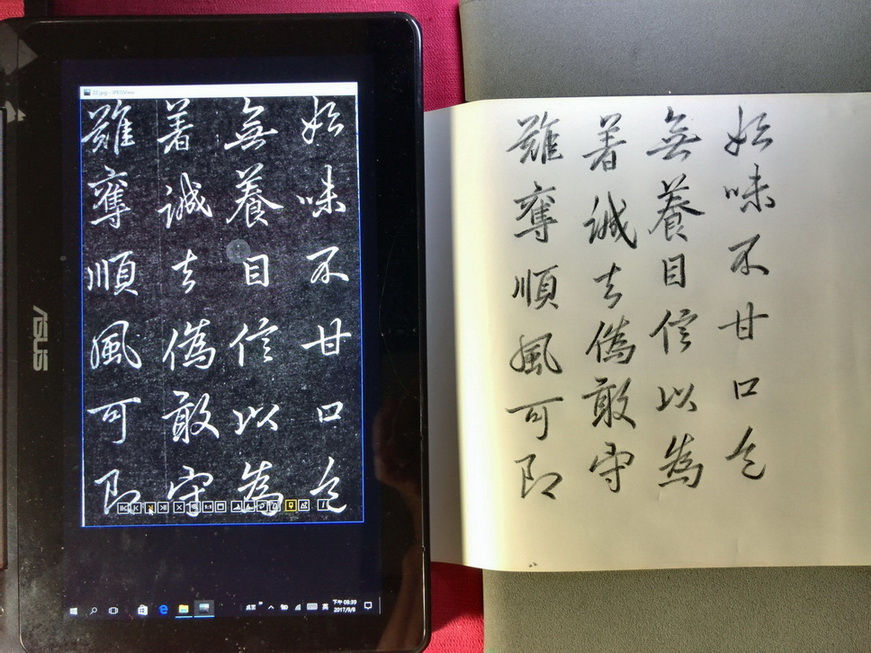 ASUS
始味不甘口色
無養目信以為
著誠去偽敢守
難奪順風可即
英
下午
2017/9/8
始味不甘口色
無養目信以為
著誠去偽敢守
難奪順風可即